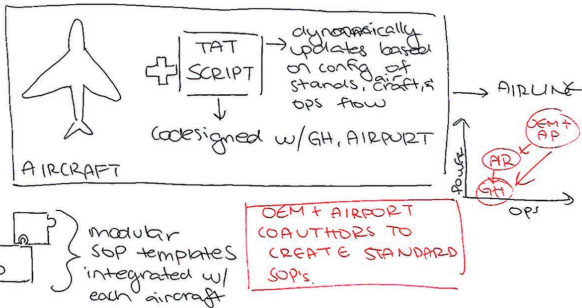 TAT
SCRIPT
dynamically
updates based
on config of
stands, aircraft, &
ops flow
codesigned w/GH, AIRPORT
AIRCRAFT
AIRLINE
POWER
OPS
OEM +
AP
AR
GH
modular
SOP templates
integrated w/
each aircraft
OEM + AIRPORT
COAUTHORS TO
CREATE STANDARD
SOP's.